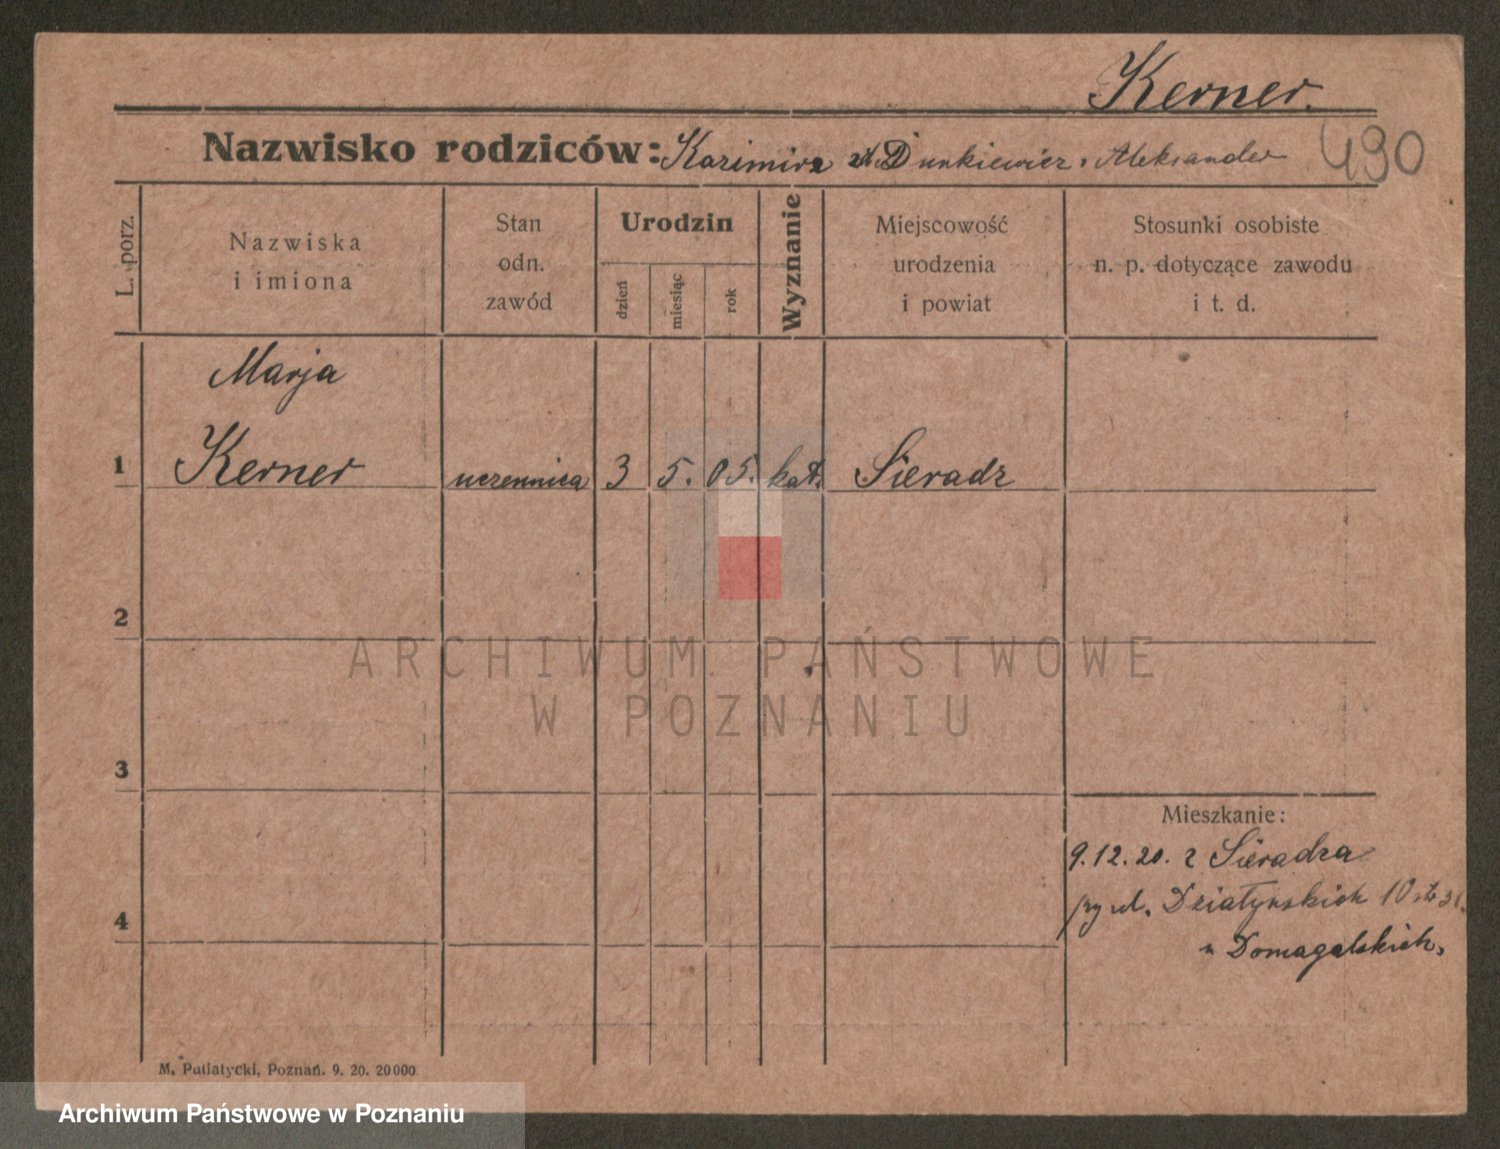 Kerner.
Nazwisko rodziców: Kazimira Dunkiewicz. Aleksander
490
L. porz.
Nazwiska
i imiona
Stan
odn.
zawód
Urodzin
dzień
miesiąc
rok
Wyznanie
Miejscowość
urodzenia
i powiat
Stosunki osobiste
n. p. dotyczące zawodu
i t. d.
Marja
1 Kerner uczennica 3 5. 05. kat. Sieradz
2
ARCHIWUM PAŃSTWOWE
W POZNANIU
3
Mieszkanie:
9.12.20. z Sieradza
4 ul. Działyńskich 10
u Domagalskich.
M. Putiatycki, Poznań. 9. 20. 20000.
Archiwum Państwowe w Poznaniu